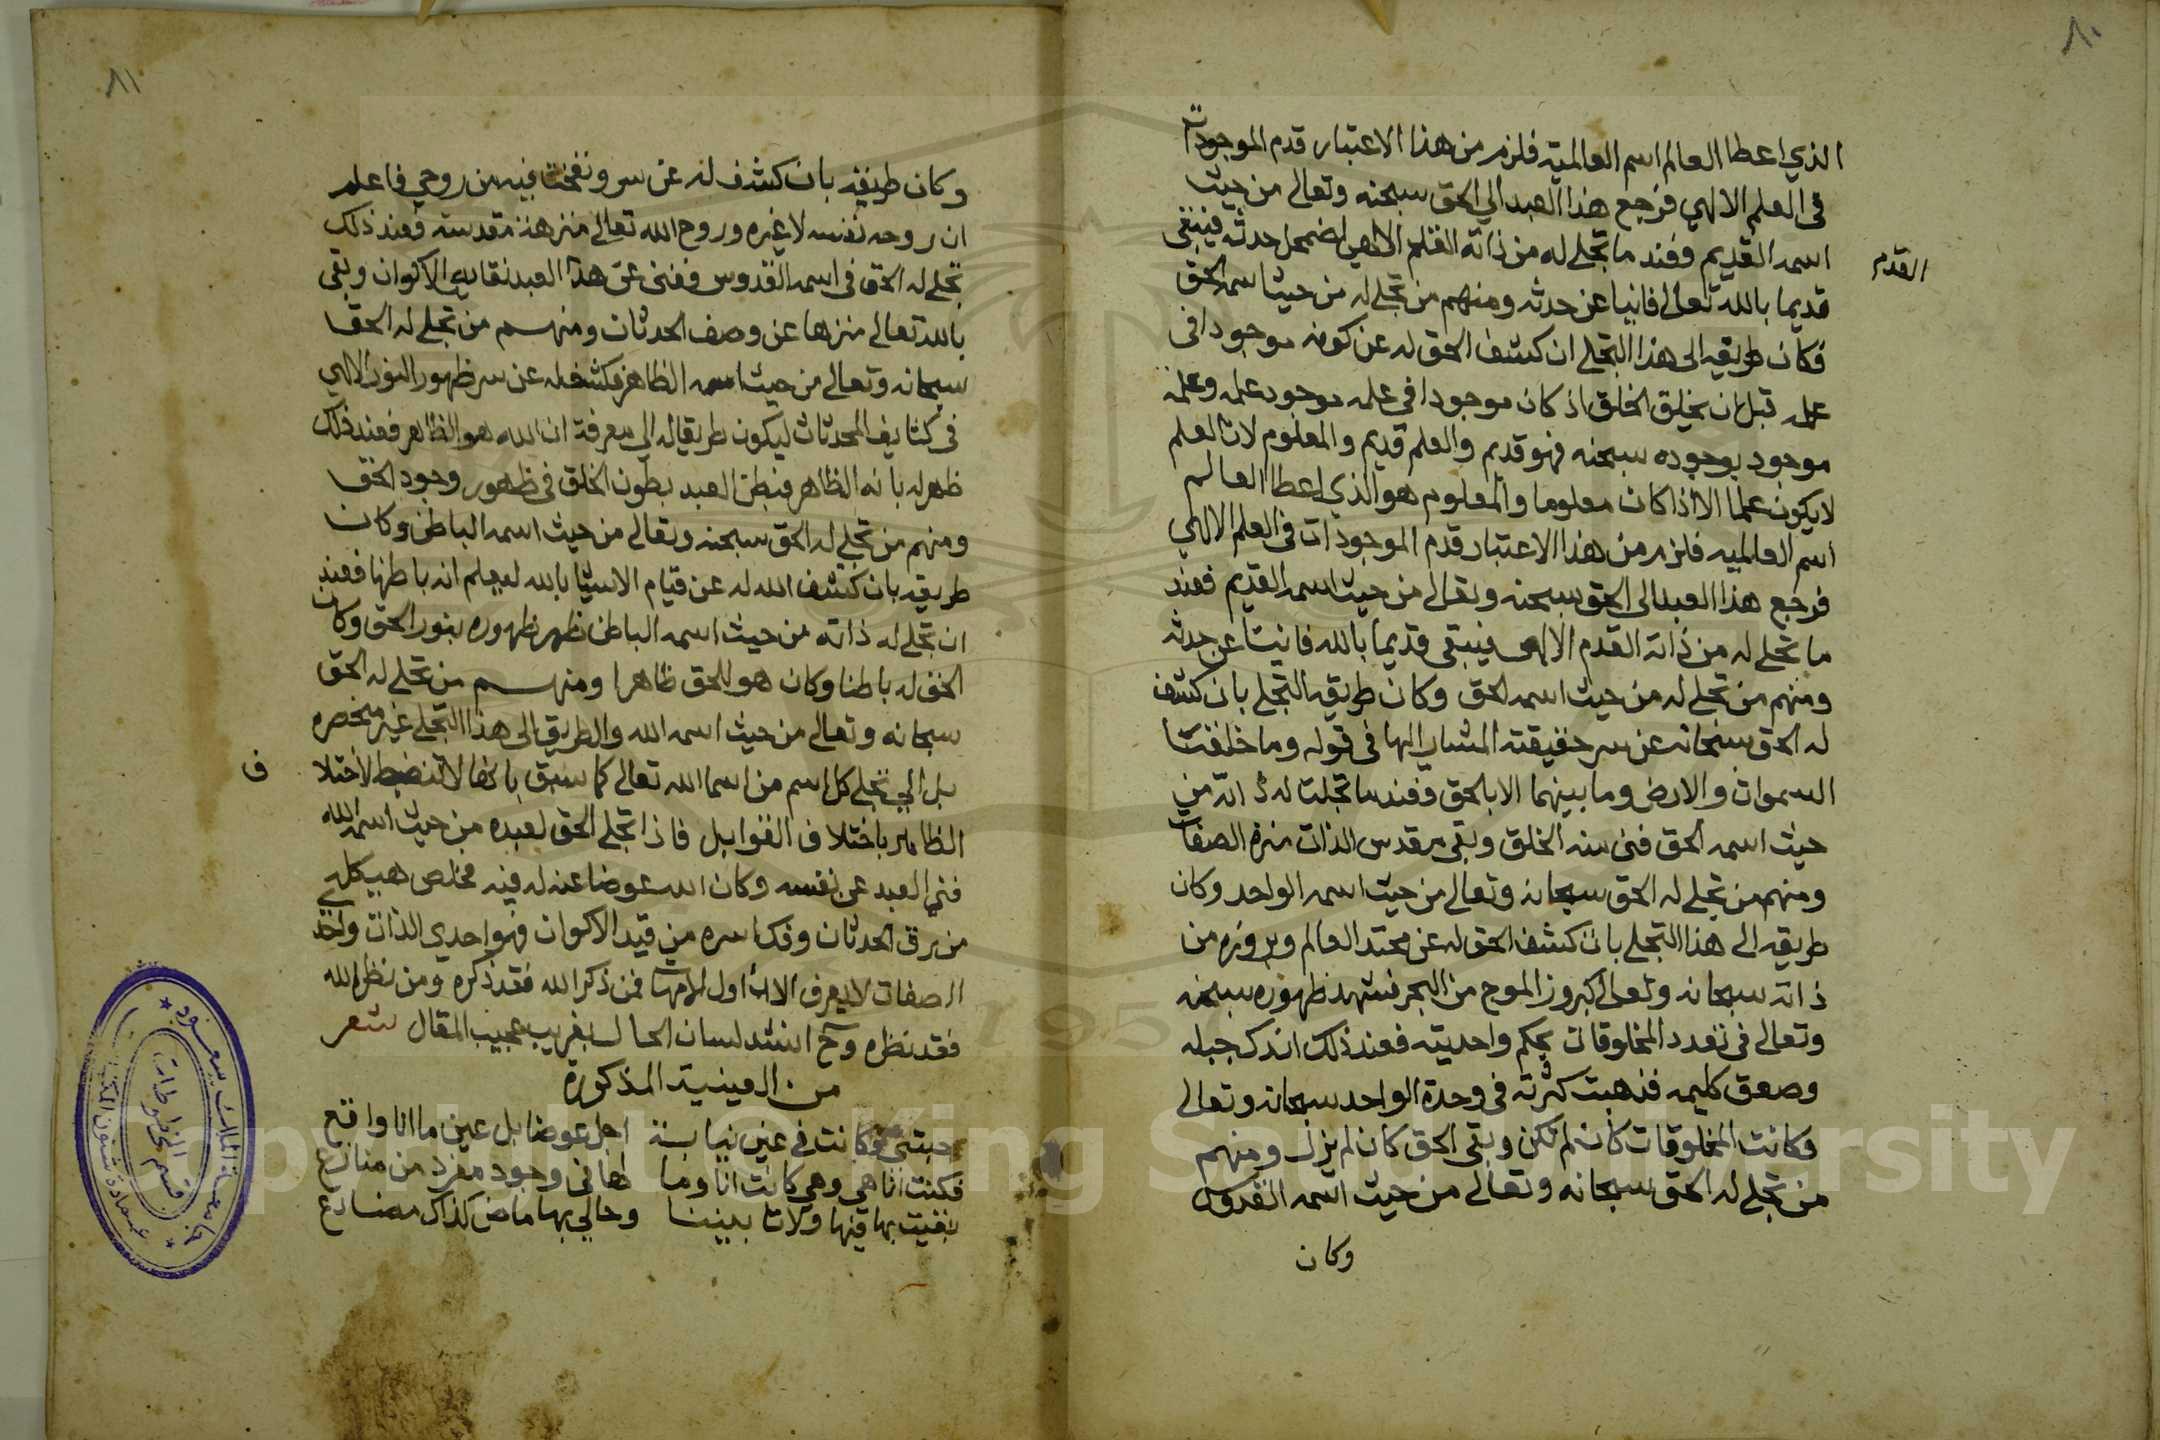 ٨٠
الذي اعطا العالم اسم العالمية فلزم من هذا الاعتبار قدم الموجودات
في العلم الالهي فرجع هذا العبد الي الحق سبحنه وتعالى من حيث
اسمه القديم فعند ما تجلى له من ذاته القلم الالهي اضمحل حدثه فيبقى
القدم
قديما بالله تعالى فانيا عن حدثه ومنهم من تجلى له من حيث اسمه الحق
فكان طريقه الى هذا التجلي ان كشف الحق له عن كونه موجودا في
علمه قبل ان يخلق الخلق اذ كان موجودا في علمه موجود علمه وعلمه
موجود بوجوده سبحنه فهو قديم والعلم قديم والمعلوم لان العلم
لا يكون علما الا اذا كان معلوما والمعلوم هو الذي اعطا العالم
اسم العالميه فلزم من هذا الاعتبار قدم الموجودات في العلم الالهي
فرجع هذا العبد الى الحق سبحنه وتعالى من حيث اسمه القديم فعند
ما تجلى له من ذاته القدم الالهي فيبقى قديما بالله فانيا عن حدثه
ومنهم من تجلى له من حيث اسمه الحق وكان طريقه التجلي بان كشف
له الحق سبحانه عن سر حقيقته المشار اليها في قوله وما خلقنا
السموات والارض وما بينهما الا بالحق فعند ما تجلت له ذاته من
حيث اسمه الحق فنى منه الخلق وبقى مقدس الذات منزه الصفات
ومنهم من تجلى له الحق سبحانه وتعالى من حيث اسمه الواحد وكان
طريقه الى هذا التجلي بان كشف الحق له عن محتد العالم وبروزه من
ذاته سبحانه وتعالى كبروز الموج من البحر فشهد ظهوره سبحنه
وتعالى في تعدد المخلوقات بحكم واحديته فعند ذلك اندك جبله
وصعق كليمه فذهبت كثرته في وحدة الواحد سبحانه وتعالى
وكانت المخلوقات كان لم تكن وبقى الحق كان لم يزل ومنهم
من تجلى له الحق سبحانه وتعالى من حيث اسمه القدوس
وكان
٨١
وكان طريقه بان كشف له عن سر ونفخت فيه من روحي فاعلمه
ان روحه نفسه لا غيره وروح الله تعالى منزهة مقدسة فعند ذلك
تجلى له الحق في اسمه القدوس ففنى عن هذا العبد نقايص الاكوان وبقى
بالله تعالى منزها عن وصف الحدثان ومنهم من تجلى له الحق
سبحانه وتعالى من حيث اسمه الظاهر فكشف له عن سر ظهور النور الالهي
في كثايف المحدثات ليكون طريقا له الي معرفة ان الله هو الظاهر فعند ذلك
ظهر له بانه الظاهر فبطن العبد بطون الخلق في ظهور وجود الحق
ومنهم من تجلى له الحق سبحنه وتعالى من حيث اسمه الباطن وكان
طريقه بان كشف الله له عن قيام الاشيا بالله ليعلم انه باطنها فعند
ان تجلى له ذاته من حيث اسمه الباطن ظهر ظهوره بنور الحق وكان
الحق له باطنا وكان هو للحق ظاهرا ومنهم من تجلى له الحق
سبحانه وتعالى من حيث اسمه الله والطريق الى هذا التجلي غير منحصره
بل الي تجلى كل اسم من اسما الله تعالى كما سبق بانها لا تنضبط لاختلا
ف
الظاهر باختلاف القوابل فاذا تجلى الحق لعبده من حيث اسمه الله
فني العبد عن نفسه وكان الله عوضا عنه له فيه فخلص هيكله
من رق الحدثان وفك اسره من قيد الاكوان فهو احدي الذات واحد
الصفات لا يعرف الابا اول الامهات فمن ذكر الله فقد ذكره ومن نظر الله
فقد نظره وح انشد لسان الحال بغريب عجيب المقال شعر
من العينية المذكورة
خبتني فكانت في عني نيابة اجل عوضا بل عين ما انا واقع
فكنت انا هي وهي كانت انا وما لها في وجود مفرد من منازع
بقيت بها فيها ولا تا بيننا وحالي بها ماض كذاك مضارع
جامعة الملك سعود
عمادة شئون المكتبات
قسم المخطوطات
Copyright © King Saud University
1957